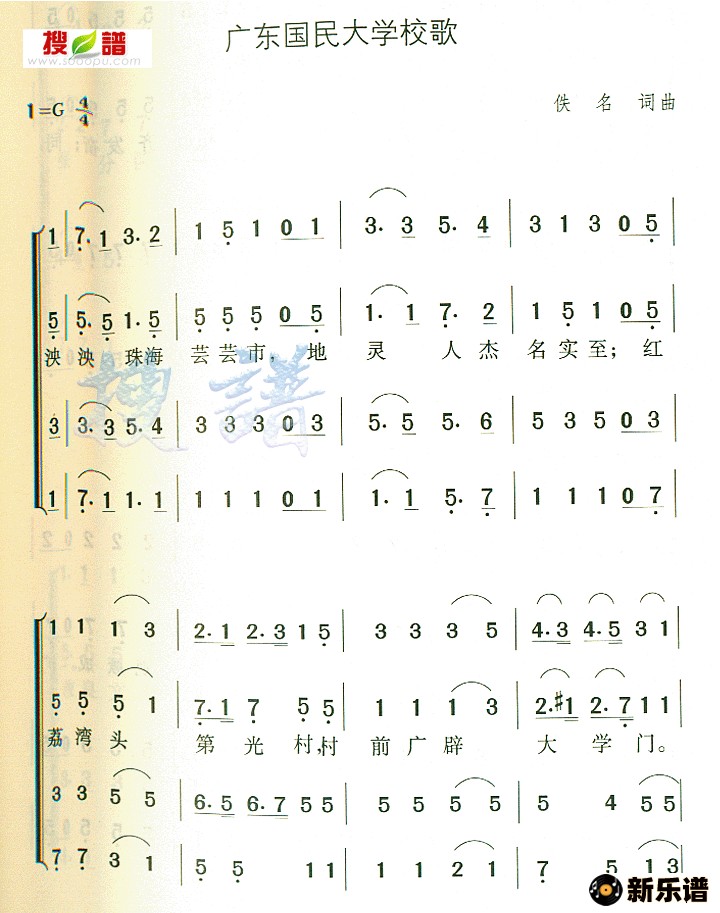 搜譜
www.sooopu.com
广东国民大学校歌
佚 名 词曲
1=G 4/4
1 | 7. 1 3. 2 | 1 5 1 0 1 | 3. 3 5. 4 | 3 1 3 0 5 |
5 | 5. 5 1. 5 | 5 5 5 0 5 | 1. 1 7. 2 | 1 5 1 0 5 |
泱 泱 珠海 芸芸市, 地 灵 人杰 名实至; 红
3 | 3. 3 5. 4 | 3 3 3 0 3 | 5. 5 5. 6 | 5 3 5 0 3 |
1 | 7. 1 1. 1 | 1 1 1 0 1 | 1. 1 5. 7 | 1 1 1 0 7 |
1 1 1 3 | 2. 1 2. 3 1 5 | 3 3 3 5 | 4. 3 4. 5 3 1 |
5 5 5 1 | 7. 1 7 5 5 | 1 1 1 3 | 2. #1 2. 7 1 1 |
荔 湾 头 第 光 村,村 前 广 辟 大 学 门。
3 3 5 5 | 6. 5 6. 7 5 5 | 5 5 5 5 | 5 4 5 5 |
7 7 3 1 | 5 5 1 1 | 1 1 2 1 | 7 5 1 3 |
搜譜
新乐谱